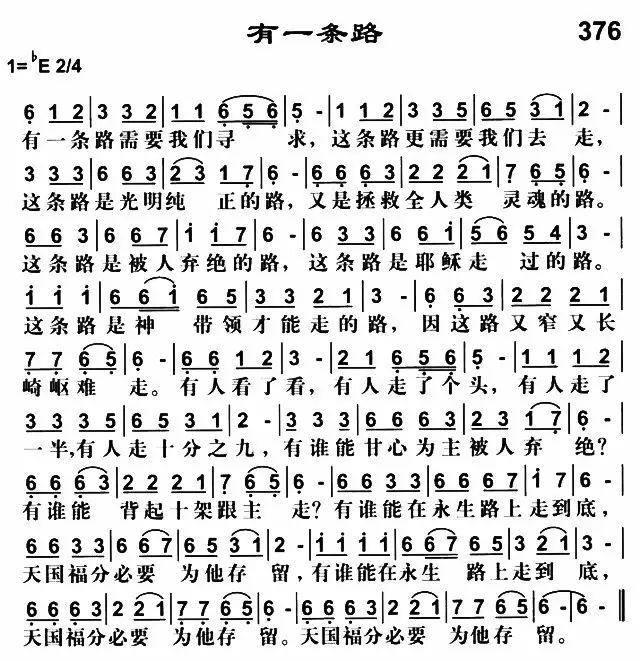 有一条路 376
1=♭E 2/4
6 1 2 | 3 3 2 | 1 1 6 5 6 | 5 - | 1 1 2 | 3 3 5 | 6 5 3 1 | 2 - |
有一条路需要我们寻 求，这条路更需要我们去 走，
3 3 3 | 6 6 3 | 2 3 1 7 | 6 - | 6 6 6 3 | 2 2 2 1 | 7 6 5 | 6 - |
这条路是光明纯 正的路，又是拯救全人类 灵魂的路。
6 6 3 | 6 6 7 | i i 7 | 6 - | 6 3 3 | 6 6 i | 5 6 5 4 | 3 - |
这条路是被人弃绝的路，这条路是耶稣走 过的路。
i i i | 6 6 i 6 5 | 3 3 2 1 | 3 - | 6 6 3 | 2 2 2 1 |
这条路是神 带领才能走的路，因这路又窄又长
7 7 6 5 | 6 - | 6 6 1 2 | 3 - | 2 2 1 | 6 5 6 | 5 - | 1 1 1 1 |
崎岖难 走。有人看了看，有人走了个头，有人走了
3 3 3 5 | 6 5 3 1 | 2 - | 3 3 3 | 6 6 6 3 | 2 3 1 7 | 6 - |
一半,有人走十分之九，有谁能甘心为主被人弃 绝？
6 6 6 3 | 2 2 2 1 | 7 6 5 | 6 - | 6 6 3 3 | 6 6 6 7 | i 7 | 6 - |
有谁能 背起十架跟主 走？有谁能在永生路上走到底，
6 6 3 3 | 6 6 7 | 6 5 3 1 | 2 - | i i i i | 6 6 7 6 5 | 3 2 1 | 3 - |
天国福分必要 为他存 留，有谁能在永生 路上走到底，
6 6 6 3 | 2 2 1 | 7 7 6 5 | 6 - | 6 6 6 3 | 2 2 1 | 7 7 6 5 | 6 - | 6 - ‖
天国福分必要 为他存 留。天国福分必要 为他存 留。